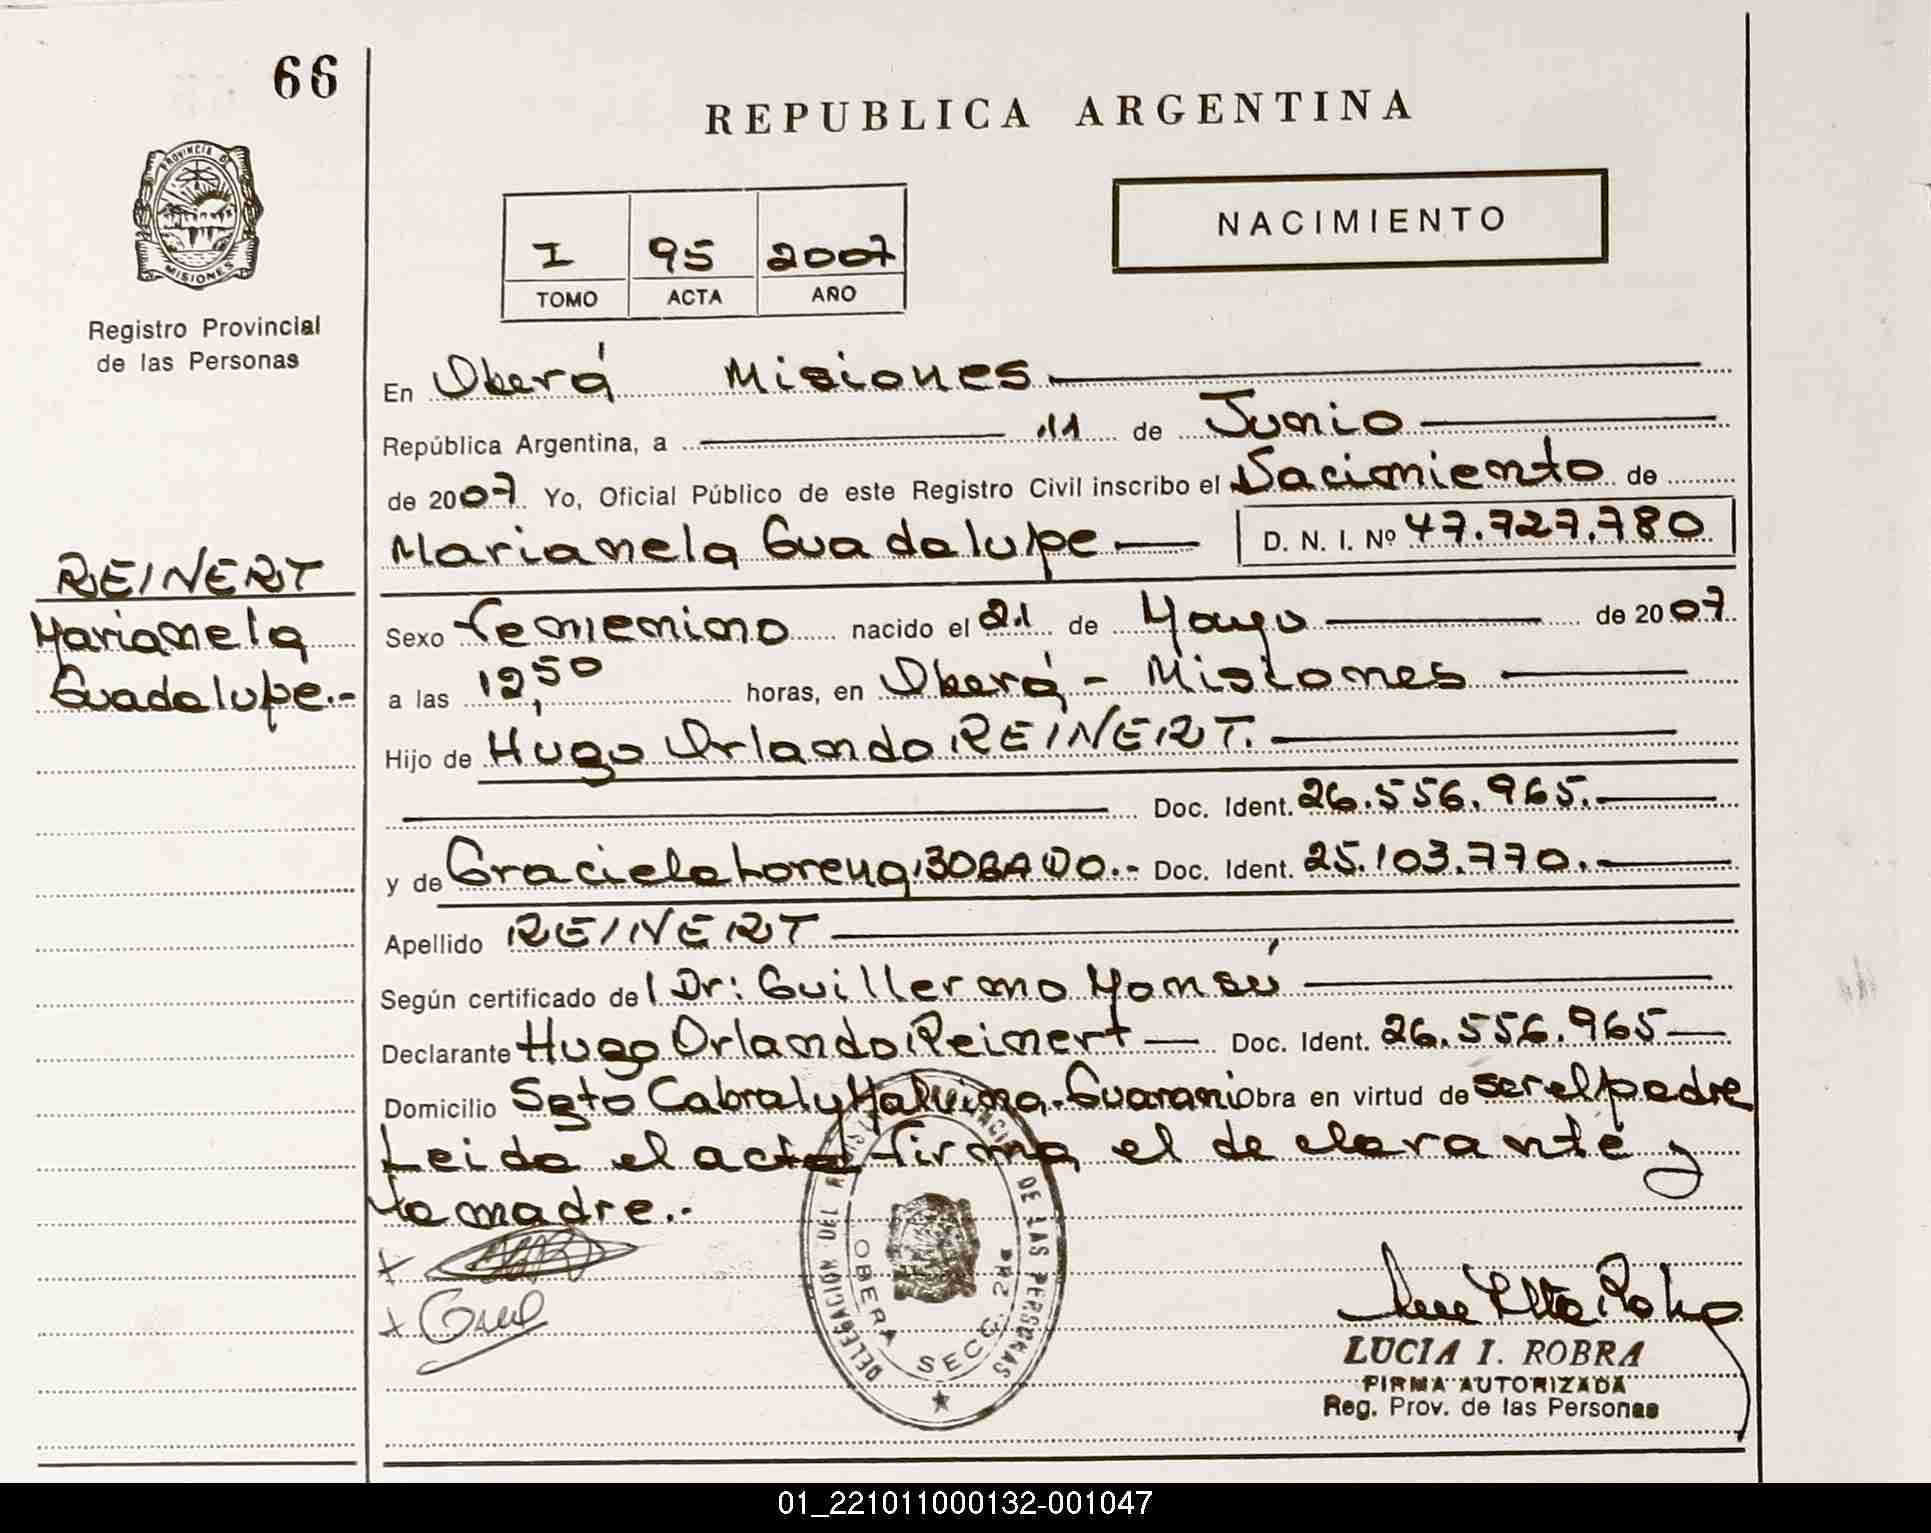 66
REPUBLICA ARGENTINA
PROVINCIA DE
MISIONES
Registro Provincial
de las Personas
I 95 2007
TOMO ACTA AÑO
NACIMIENTO
En Oberá Misiones
República Argentina, a 11 de Junio
de 2007. Yo, Oficial Público de este Registro Civil inscribo el Nacimiento de
Marianela Guadalupe D. N. I. Nº 47.727.780
REINERT
Marianela
Guadalupe.-
Sexo femenino nacido el 21 de Mayo de 2007
a las 12,50 horas, en Oberá - Misiones
Hijo de Hugo Orlando REINERT.
Doc. Ident. 26.556.965.
y de Graciela Lorena BOBADO.- Doc. Ident. 25.103.770.
Apellido REINERT
Según certificado del Dr: Guillermo
Declarante Hugo Orlando Reinert Doc. Ident. 26.556.965
Domicilio Sgto Cabral y Malvina. Guarani Obra en virtud de ser el padre
Leida el acta firma el declarante y
la madre.-
DELEGACION DEL REGISTRO PROVINCIAL DE LAS PERSONAS
OBERA SECC. 2da
LUCIA I. ROBRA
FIRMA AUTORIZADA
Reg. Prov. de las Personas
01_221011000132-001047